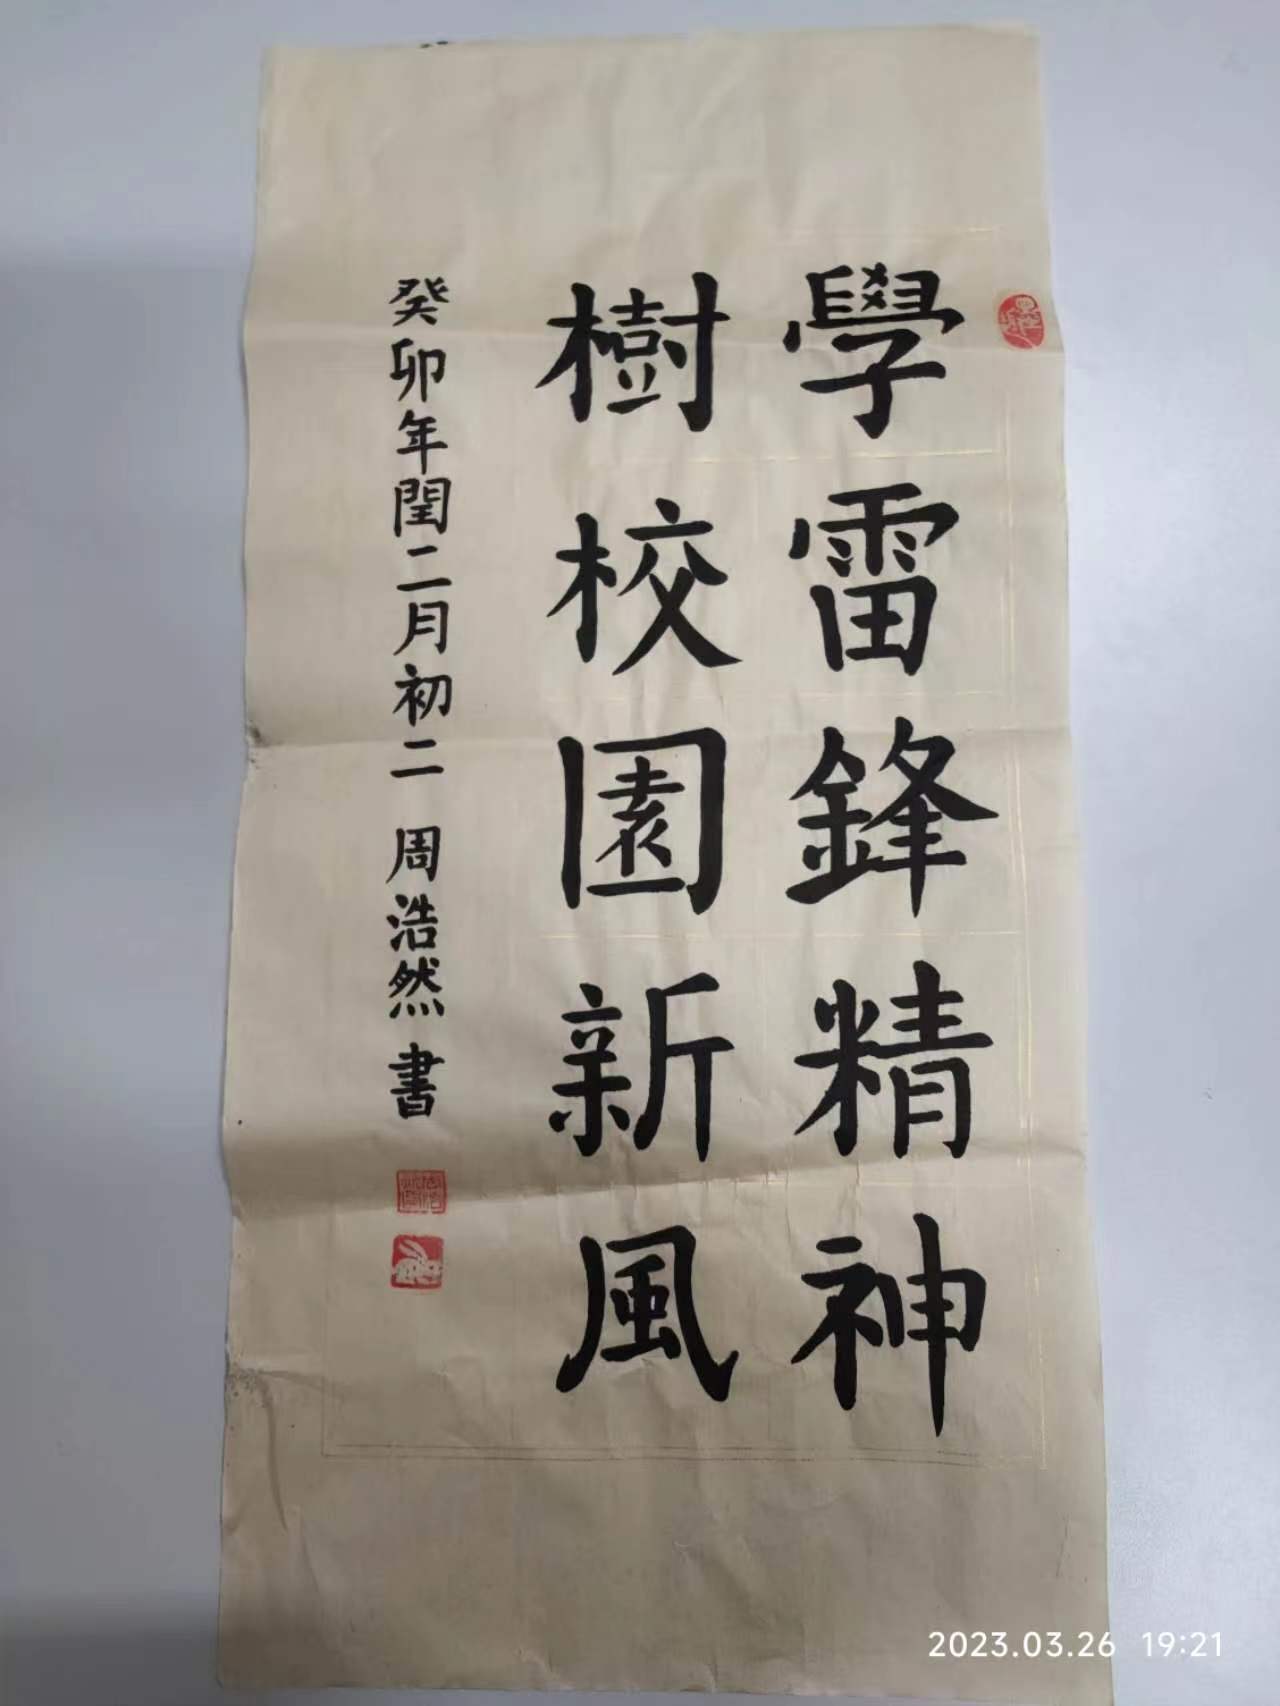 學雷鋒精神
樹校園新風
癸卯年閏二月初二 周浩然 書
2023.03.26 19:21